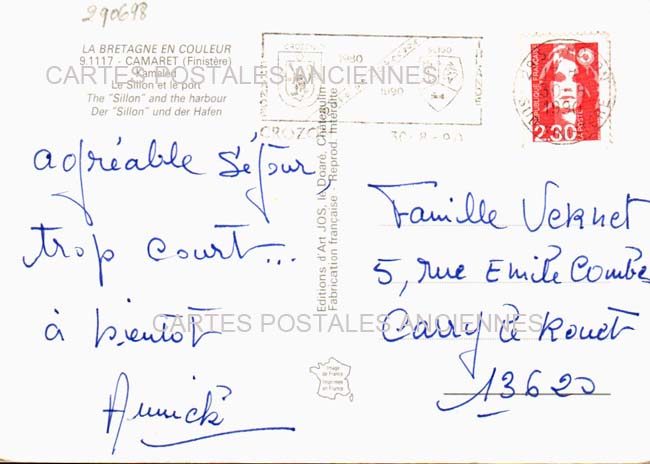 290698
LA BRETAGNE EN COULEUR
9.1117 - CAMARET (Finistère)
Kameled
Le Sillon et le port
The "Sillon" and the harbour
Der "Sillon" und der Hafen
CARTES POSTALES ANCIENNES
CROZON
1980
1990
CROZO
30-8-90
RÉPUBLIQUE FRANÇAISE
2,30
LA POSTE
agréable séjour,
trop court...
à bientôt
Annick
Editions d'Art JOS, le Doaré, Châteaulin
Fabrication française - Reprod. Interdite
Image de France
Imprimée en France
Famille Vernet
5, rue Emile Combes
Carry le Rouet
13620
CARTES POSTALES ANCIENNES